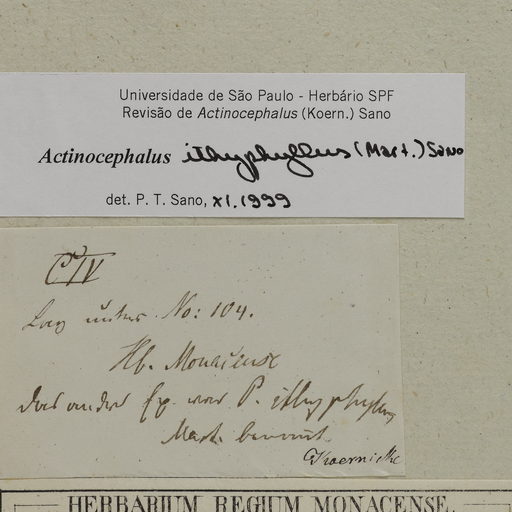 Universidade de São Paulo - Herbário SPF
Revisão de Actinocephalus (Koern.) Sano
Actinocephalus ithyphyllus (Mart.) Sano
det. P. T. Sano, XI.1999
CIV
Lag unter No: 104.
Hb. Monacense
das andre Ex. war P. ithyphyllus
Mart. benannt.
Koernicke
HERBARIUM REGIUM MONACENSE.